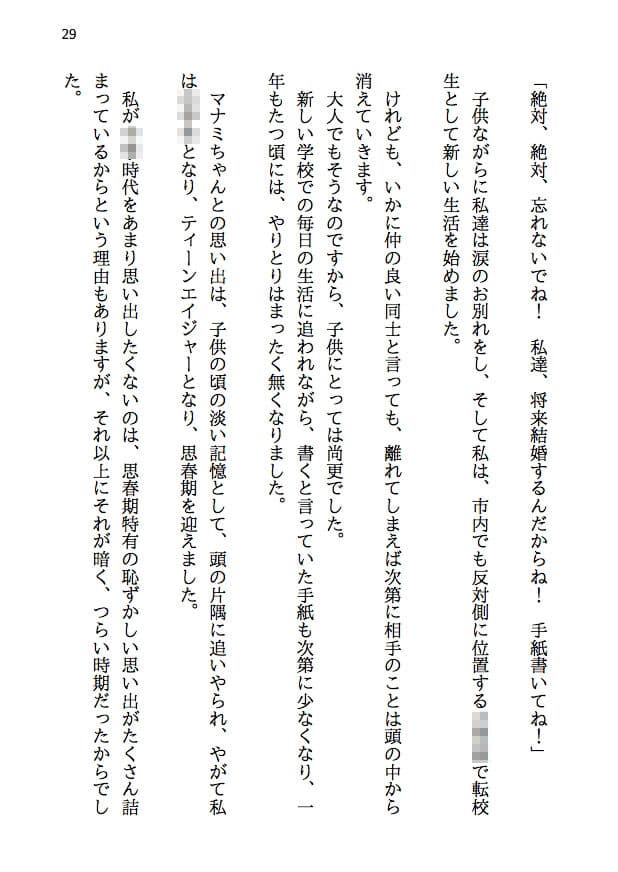 29
「絶対、絶対、忘れないでね！　私達、将来結婚するんだからね！　手紙書いてね！」
　子供ながらに私達は涙のお別れをし、そして私は、市内でも反対側に位置するで転校
生として新しい生活を始めました。
　けれども、いかに仲の良い同士と言っても、離れてしまえば次第に相手のことは頭の中から
消えていきます。
　大人でもそうなのですから、子供にとっては尚更でした。
　新しい学校での毎日の生活に追われながら、書くと言っていた手紙も次第に少なくなり、一
年もたつ頃には、やりとりはまったく無くなりました。
　マナミちゃんとの思い出は、子供の頃の淡い記憶として、頭の片隅に追いやられ、やがて私
はとなり、ティーンエイジャーとなり、思春期を迎えました。
　私が時代をあまり思い出したくないのは、思春期特有の恥ずかしい思い出がたくさん詰
まっているからという理由もありますが、それ以上にそれが暗く、つらい時期だったからでし
た。